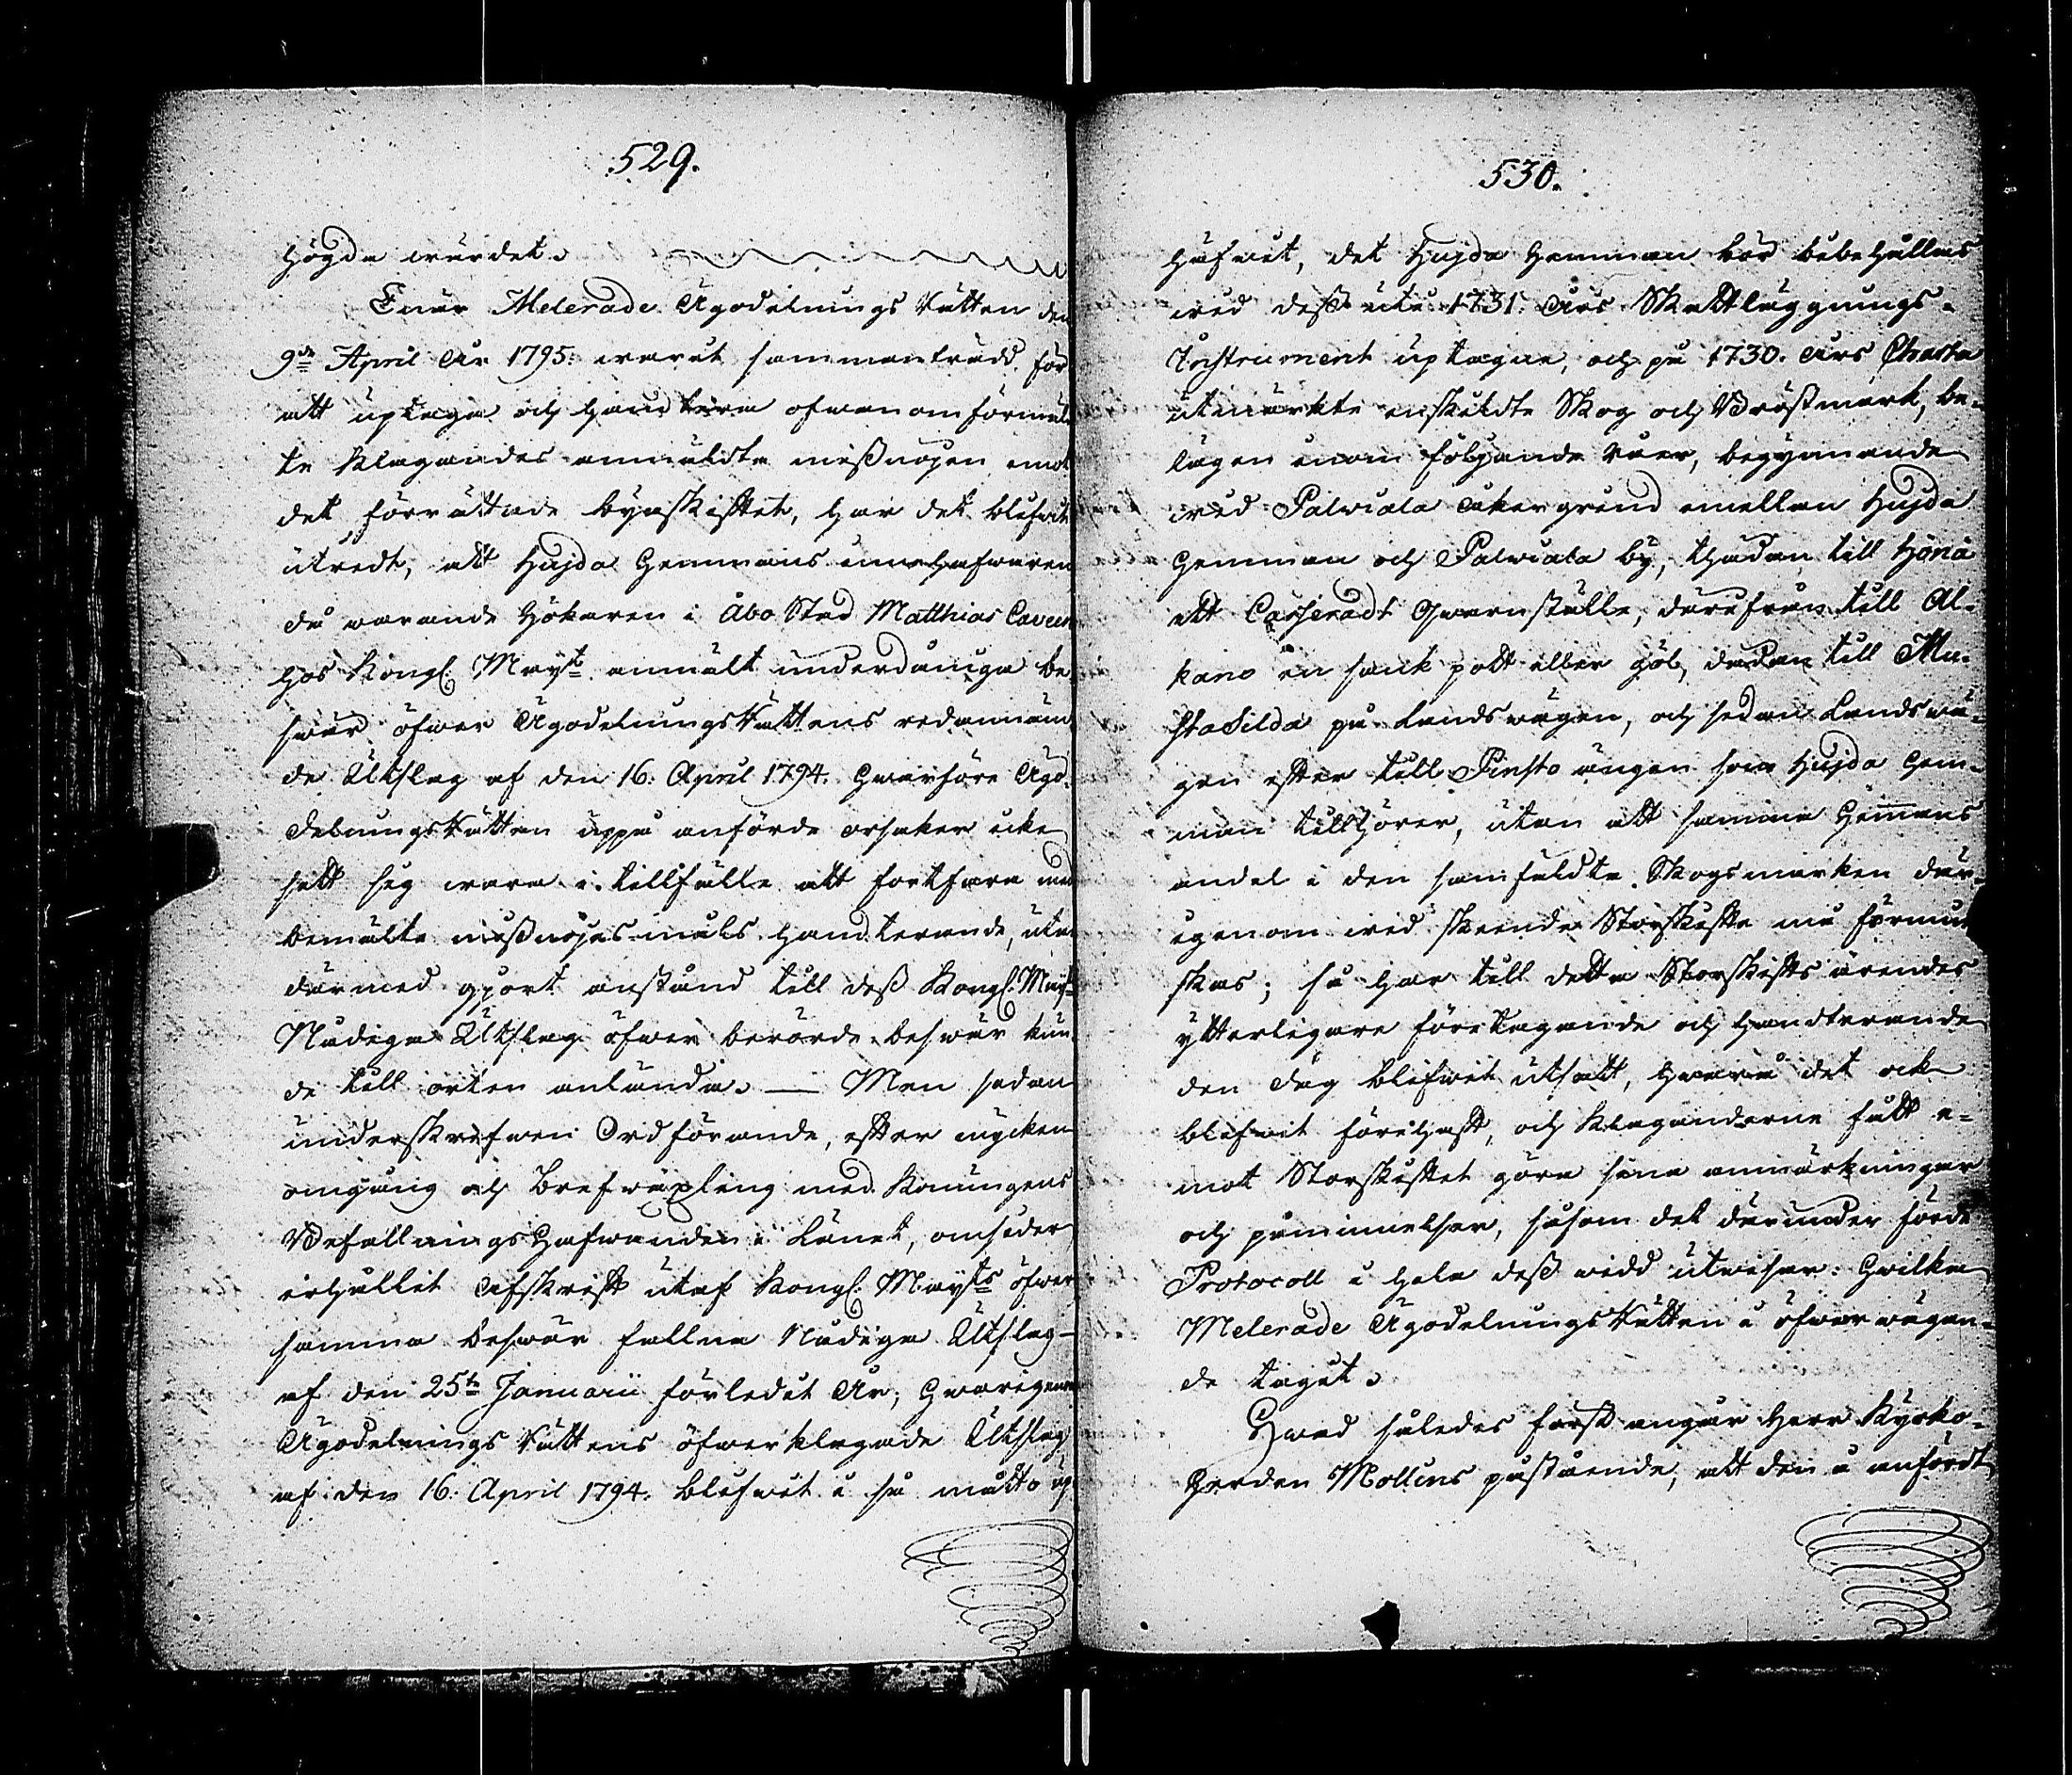 529.
högda wärdet.
Enär Melerade Ägodelnings Rätten den
9de April År 1795. warit sammanträdd för
att uptaga och handtera ofwanomförmäl-
te Klagandes anmäldte missnöjen emot
det förrättade byaskiftet, har det blifwit
utredt, att Hujda Hemmans innehafwaren
då warande Hökaren i Åbo Stad Matthias Caveen
hos Kongl. Mayt anmält underdåniga be-
swär öfwer ÄgodelningsRättens redannäm-
de Utslag af den 16. April 1794. Hwarföre Ägo-
delningsRätten uppå anförde orsaker icke
sett sig wara i tillfälle att fortfara med
bemälte missnöjes måls handterande, utan
därmed gjort anstånd till dess Kongl. Mayts
Nådiga Utslag öfwer berörde beswär kun-
de till orten anlända. — Men sedan
underskrefwen Ordförande, efter mycken
omgång och brefwäxling med Konungens
Befallningshafwande i Länet, omsider
erhållit Afskrift utaf Kongl. Mayts öfwer
samma beswär fallna Nådiga Utslag
af den 25te Januarii förledit År, Hwarigenom
Ägodelnings Rättens öfwerklagade Utslag
af den 16. April 1794. blifwit i så måtto up-
530.
häfwit, det Hujda Hemman bör bibehållas
wid dess uti 1731. Års Skattläggnings-
Instrument uptagne, och på 1730. Års Charta
utmärkte enskildte Skog och Bröstmark, be-
lägen inom följande råer, begynnande
wid Palviala åkergrind emellan Hujda
Hemman och Palviala by, thädan till Hönä
ett Casseradt Qwarnställe, därifrån till Al-
kano en sank pott eller göl, dädan till Mu-
stasilda på landswägen, och sedan Landswä-
gen efter till Pinsto ängen som Hujda Hem-
man tillhörer, utan att samma Hemmans
andel i den samfäldte Skogsmarken där-
igenom wid skeende Storskifte må förmin-
skas; så har till detta Storskifts ärendes
ytterligare företagande och handterande
den dag blifwit utsatt, hwarå det ock
blifwit förehaft, och Klaganderne fått e-
mot Storskiftet göra sina anmärkningar
och påminnelser, såsom det därunder förde
Protocoll i hela dess widd utwisar: Hwilka
Melerade ÄgodelningsRätten i öfwerwägan-
de tagit.
Hwad således först angår Herr Kyrko-
herden Mollins påstående, att den i anfördt